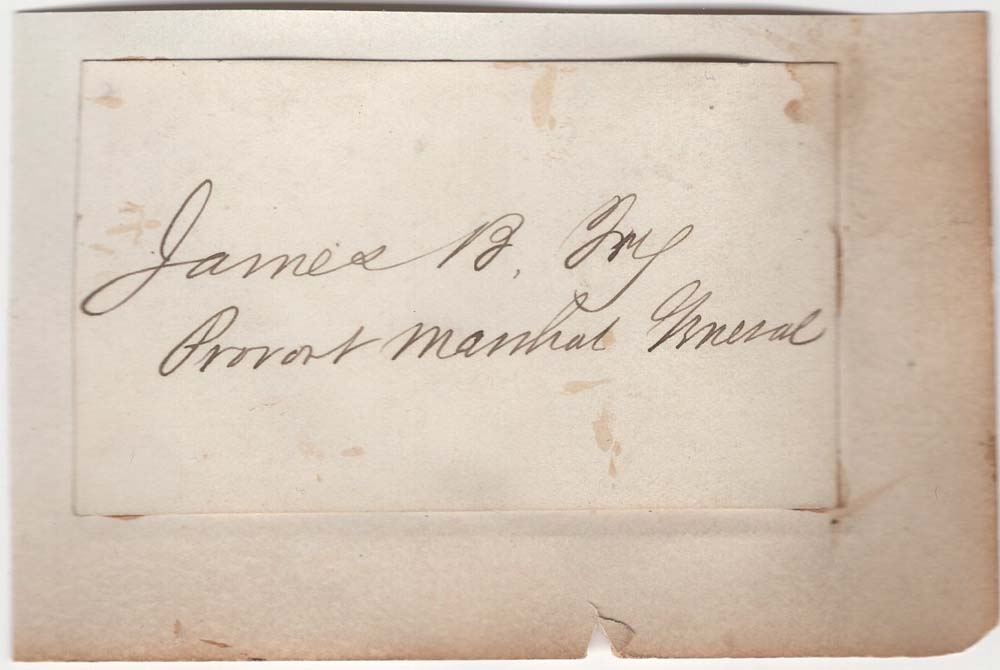 James B. Fry
Provost Marshal General